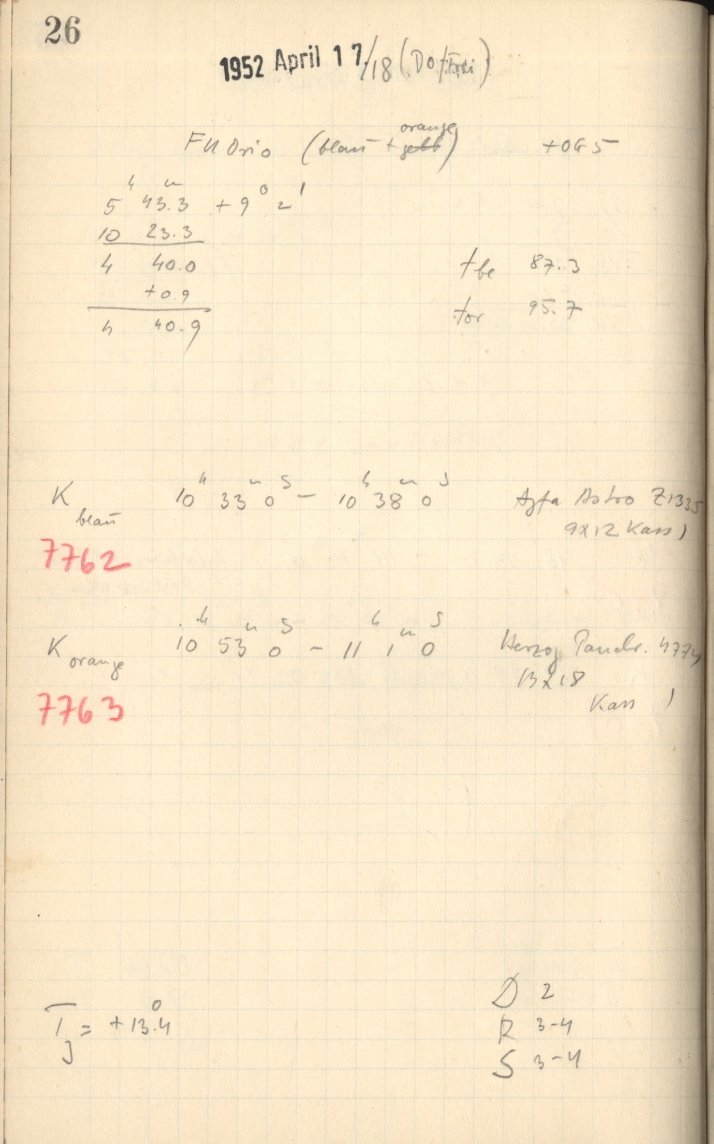 26
1952 April 17/18 (Do/Frei)
FU Orio (blau + gelb orange) + OG5
5h 43.3m + 9° 2'
10 23.3
4 40.0
+0.9
4 40.9
tbl 87.3
tor 95.7
K blau 10h 33m 0s - 10h 38m 0s Agfa Astro Z1335
9x12 Kass)
7762
K orange 10h 53m 0s - 11h 1m 0s Herzog
13x18
Kass )
7763
TJ = +13.4°
D 2
R 3-4
S 3-4